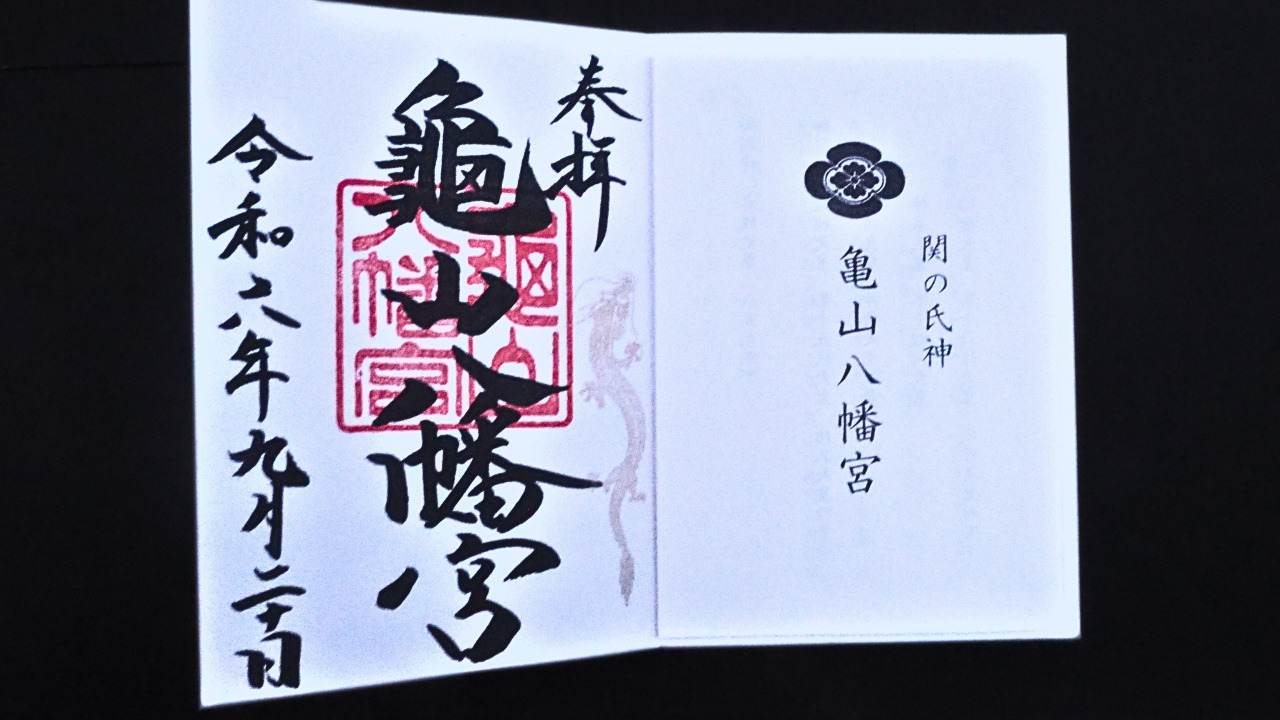 関の氏神
亀山八幡宮
奉拝
龜山八幡宮
龜山
八幡宮
令和六年九月二十日